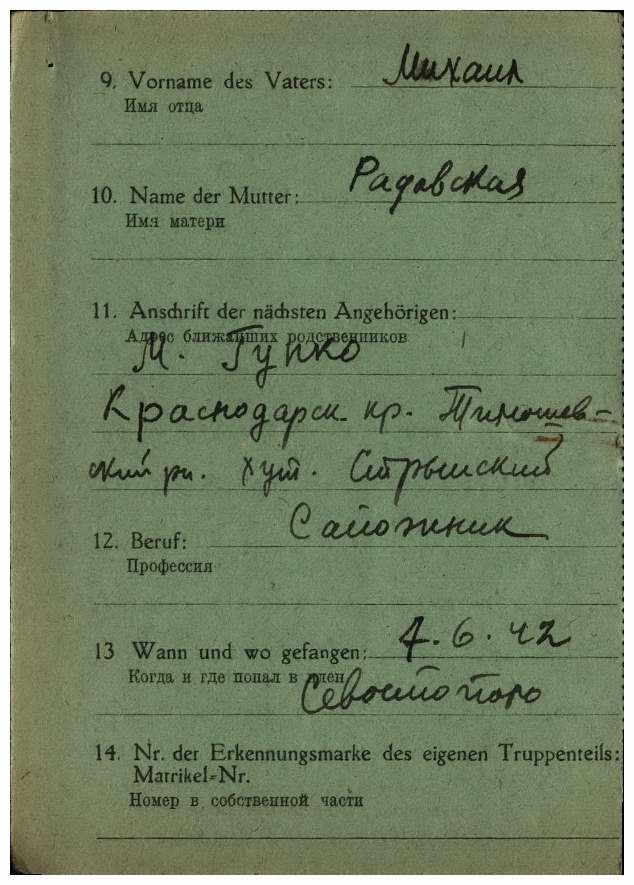 9. Vorname des Vaters: Михаил
Имя отца
10. Name der Mutter: Радовская
Имя матери
11. Anschrift der nächsten Angehörigen:
Адрес ближайших родственников
М. Гупко
Краснодарск. кр. Тимошев-
ский рн. хут. Стрыйский
Сапожник
12. Beruf:
Профессия
13 Wann und wo gefangen: 4.6.42
Когда и где попал в плен
Севостополо
14. Nr. der Erkennungsmarke des eigenen Truppenteils:
Matrikel-Nr.
Номер в собственной части